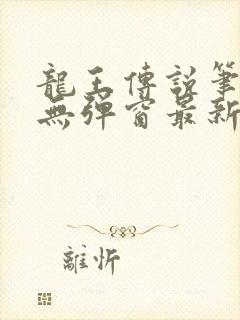 龍王傳説筆
無彈窗最新
離忻